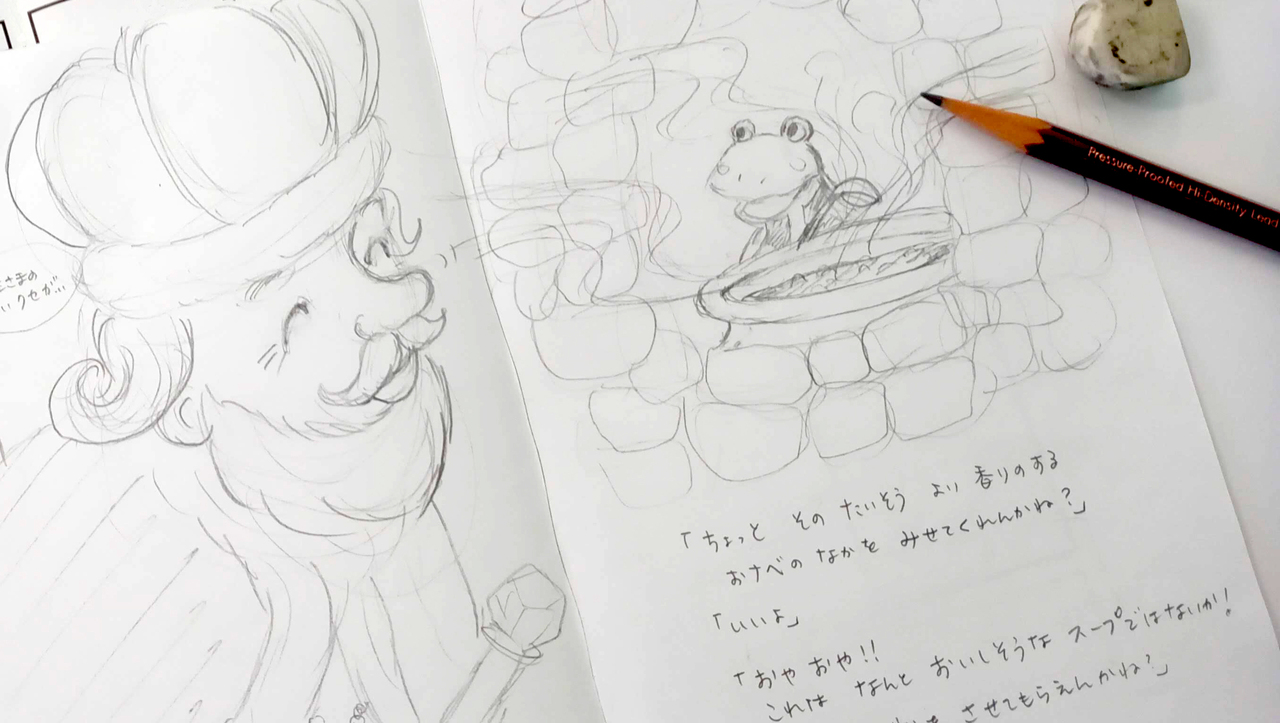 さまの
いクセが…
「ちょっと そのたいそう よい 香りのする
おナベの なかを みせてくれんかね？」
「いいよ」
「おや おや!!
これは なんと おいしそうな スープではないか！
させてもらえんかね？」
Pressure-Proofed Hi-Density Lead